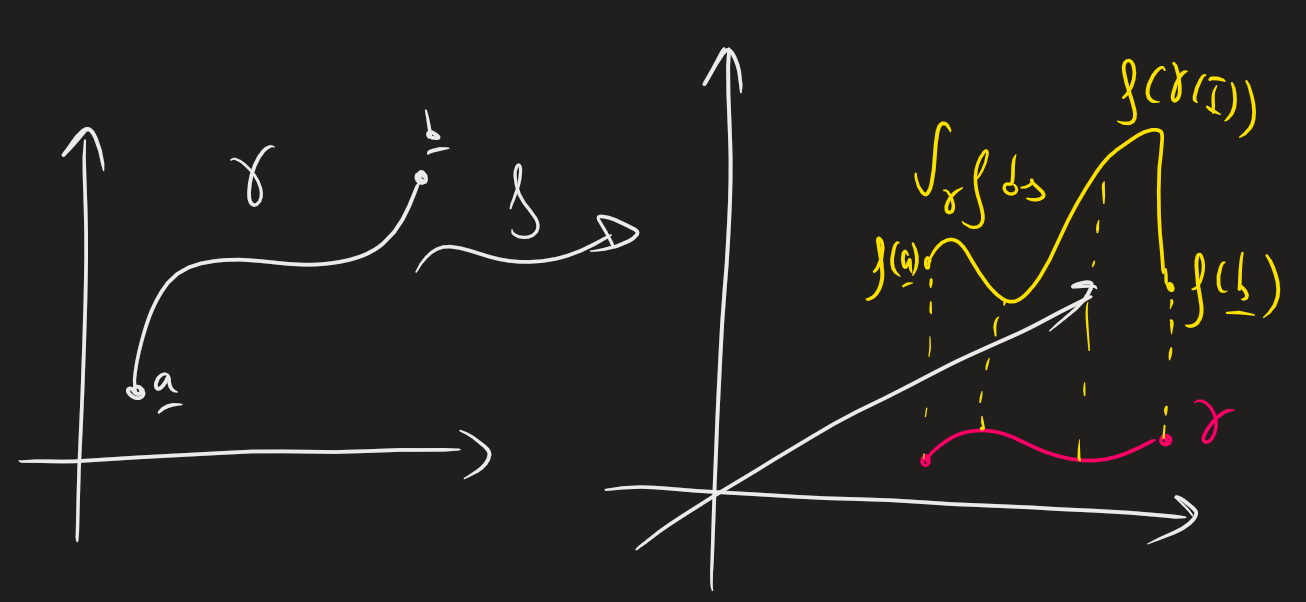 γ
b
f
a
f(γ(I))
∫γ f ds
f(a)
f(b)
γ